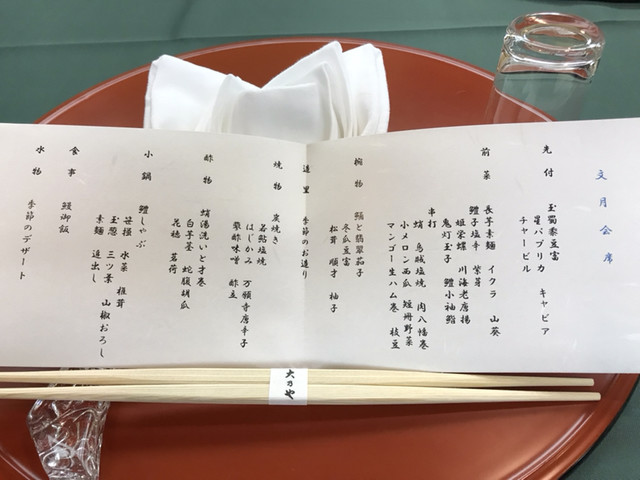 文月会席
先付
玉蜀黍豆富 キャビア
星パプリカ
チャービル
前菜
長芋素麺 イクラ 山葵
鱧子塩辛 紫芽
姫栄螺 川海老唐揚
鬼灯玉子 鱧小袖鮨
串打
蛸 烏賊塩焼 肉八幡巻
小メロン西瓜 短冊野菜
マンゴー生ハム巻 枝豆
椀物
鱸と翡翠茄子
冬瓜豆富
松茸 順才 柚子
造里
季節のお造り
焼物
炭焼き
若鮎塩焼 万願寺唐辛子
はじかみ
蓼酢味噌 酢立
酢物
蛸湯洗いと才巻
白芋茎 蛇腹胡瓜
花穂 茗荷
小鍋
鱧しゃぶ
笹掻 水菜 椎茸
玉葱 三ツ葉 山椒おろし
素麺 追出し
食事
鰻御飯
水物
季節のデザート
大乃や